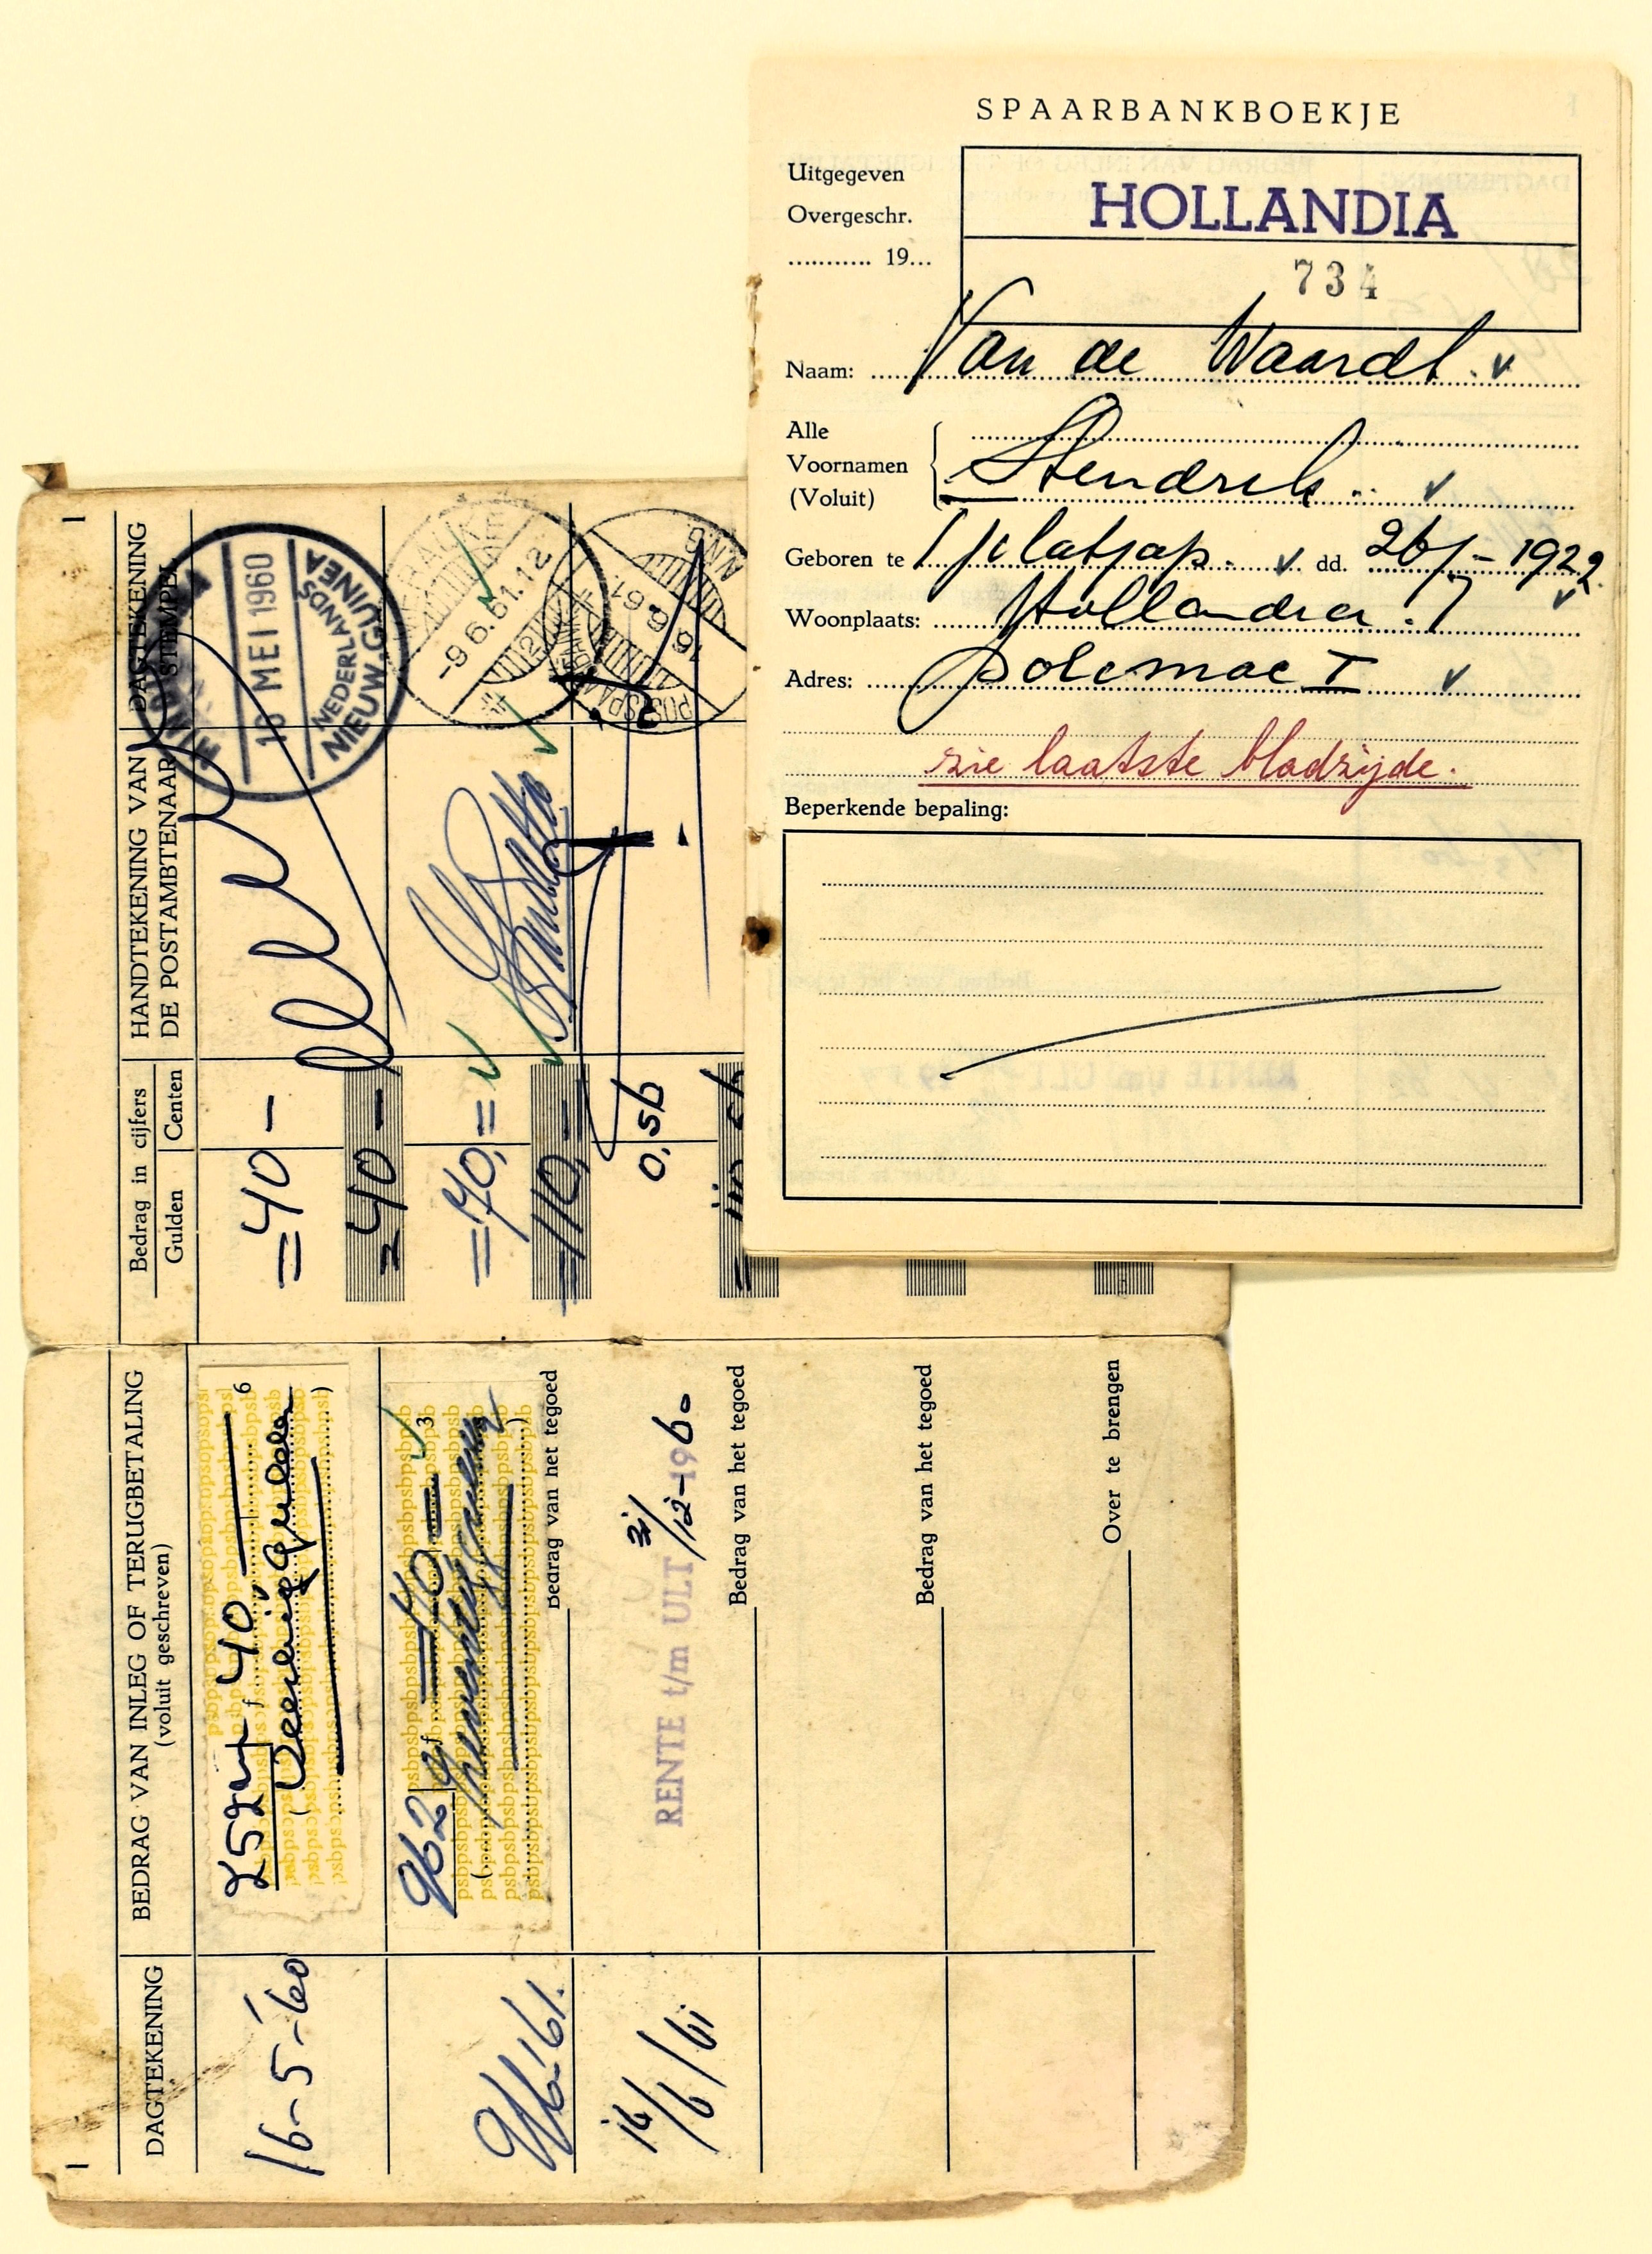 SPAARBANKBOEKJE
Uitgegeven
Overgeschr.
........... 19...
HOLLANDIA
734
Naam: Van de Waardt.
Alle
Voornamen
(Voluit)
Hendrik
Geboren te Tjelatjap. dd. 26/7-1922.
Woonplaats: Hollandia.
Adres: Polemac I
zie laatste bladzijde.
Beperkende bepaling:
1
DAGTEKENING
BEDRAG VAN INLEG OF TERUGBETALING
(voluit geschreven)
Bedrag in cijfers
Gulden
Centen
HANDTEKENING VAN
DE POSTAMBTENAAR
DAGTEKENING
STEMPEL
1
16-5-'60
f 40,—
6
(Veertig gulden)
=40 —
16 MEI 1960
NEDERLANDS
NIEUW-GUINEA
=40 —
962
f =70=
3
=70,=
-9.6.61.12
Bedrag van het tegoed
=110,=
16/6/61
RENTE t/m ULT 31/12-1960
0,56
16 6 61
Bedrag van het tegoed
Bedrag van het tegoed
Over te brengen